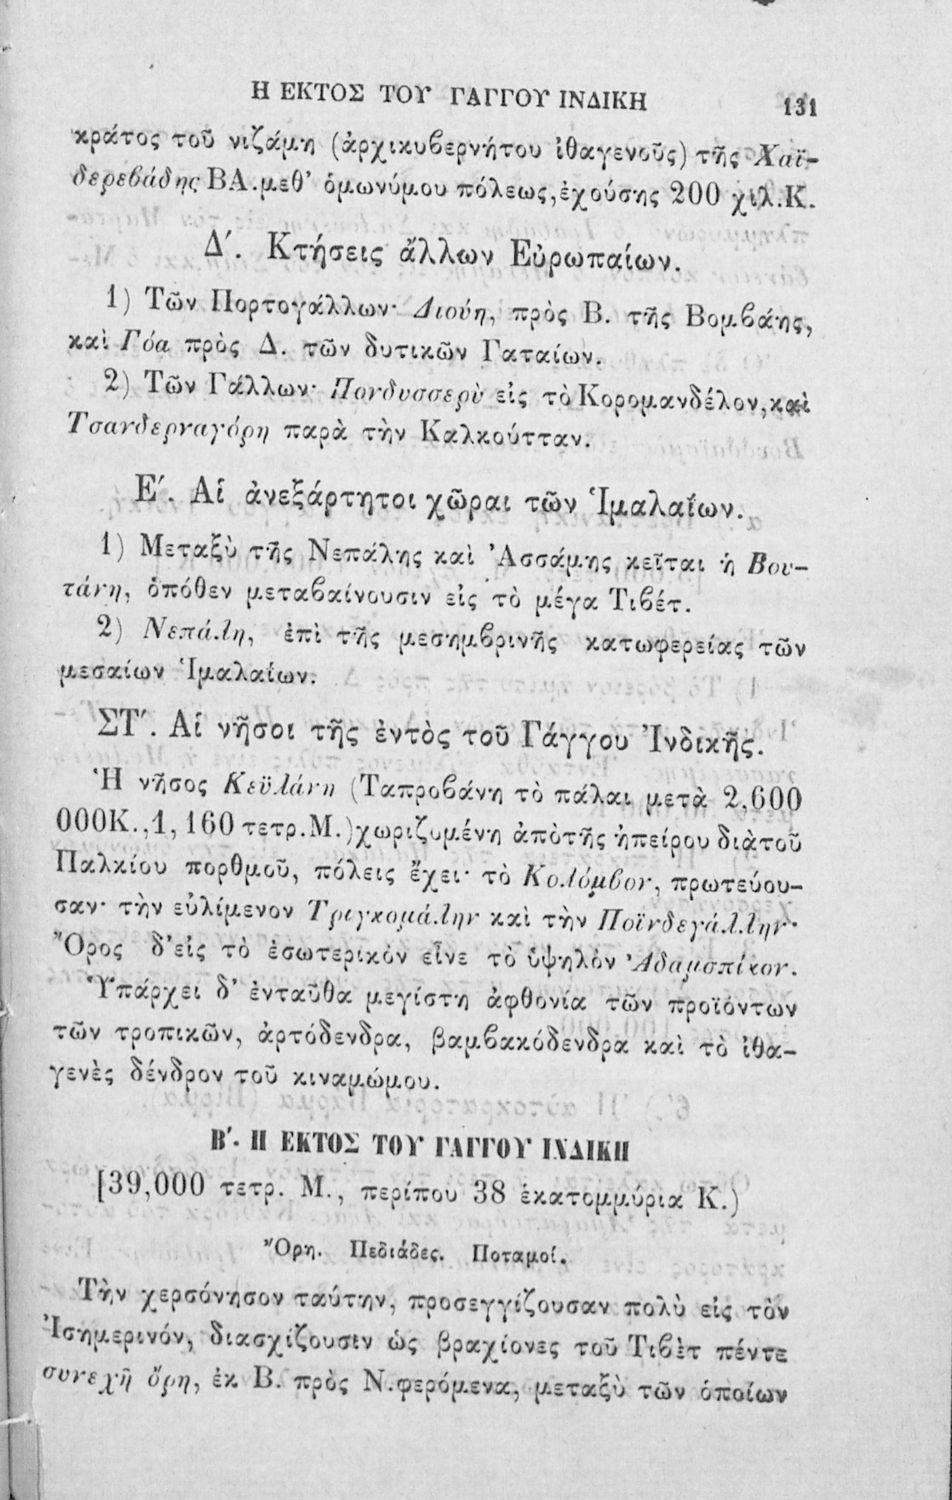 Η ΕΚΤΟΣ ΤΟΥ ΓΑΓΓΟΥ ΙΝΔΙΚΗ 131
κράτος τοῦ νιζάμη (ἀρχικυβερνήτου ἰθαγενοῦς) τῆς Χαϊ-
δερεβάδης ΒΑ.μεθ' ὁμωνύμου πόλεως, ἐχούσης 200 χιλ.Κ.
Δ΄. Κτήσεις ἄλλων Εὐρωπαίων.
1) Τῶν Πορτογάλλων· Διούη, πρὸς Β. τῆς Βομβάης,
καὶ Γόα πρὸς Δ. τῶν δυτικῶν Γαταίων.
2) Τῶν Γάλλων· Πονδυσσερὺ εἰς τὸ Κορομανδέλον, καὶ
Τσανδερναγόρη παρὰ τὴν Καλκούτταν.
Ε΄. Αἱ ἀνεξάρτητοι χῶραι τῶν Ἱμαλαΐων.
1) Μεταξὺ τῆς Νεπάλης καὶ Ἀσσάμης κεῖται ἡ Βου-
τάνη, ὁπόθεν μεταβαίνουσιν εἰς τὸ μέγα Τιβέτ.
2) Νεπάλη, ἐπὶ τῆς μεσημβρινῆς κατωφερείας τῶν
μεσαίων Ἱμαλαΐων.
ΣΤ΄. Αἱ νῆσοι τῆς ἐντὸς τοῦ Γάγγου Ἰνδικῆς.
Ἡ νῆσος Κεϋλάνη (Ταπροβάνη τὸ πάλαι μετὰ 2,600
000Κ.,1,160 τετρ.Μ.) χωριζομένη ἀπὸ τῆς ἠπείρου διὰ τοῦ
Παλκίου πορθμοῦ, πόλεις ἔχει· τὸ Κολόμβον, πρωτεύου-
σαν· τὴν εὐλίμενον Τριγκομάλην καὶ τὴν Ποϊνδεγάλλην·
Ὄρος δ' εἰς τὸ ἐσωτερικὸν εἶνε τὸ ὑψηλὸν Ἀδαμσπίκον.
Ὑπάρχει δ' ἐνταῦθα μεγίστη ἀφθονία τῶν προϊόντων
τῶν τροπικῶν, ἀρτόδενδρα, βαμβακόδενδρα καὶ τὸ ἰθα-
γενὲς δένδρον τοῦ κιναμώμου.
Β΄. Η ΕΚΤΟΣ ΤΟΥ ΓΑΓΓΟΥ ΙΝΔΙΚΗ
[39,000 τετρ. Μ., περίπου 38 ἑκατομμύρια Κ.)
Ὄρη. Πεδιάδες. Ποταμοί.
Τὴν χερσόνησον ταύτην, προσεγγίζουσαν πολὺ εἰς τὸν
Ἰσημερινόν, διασχίζουσιν ὡς βραχίονες τοῦ Τιβὲτ πέντε
συνεχῆ ὄρη, ἐκ Β. πρὸς Ν. φερόμενα, μεταξὺ τῶν ὁποίων